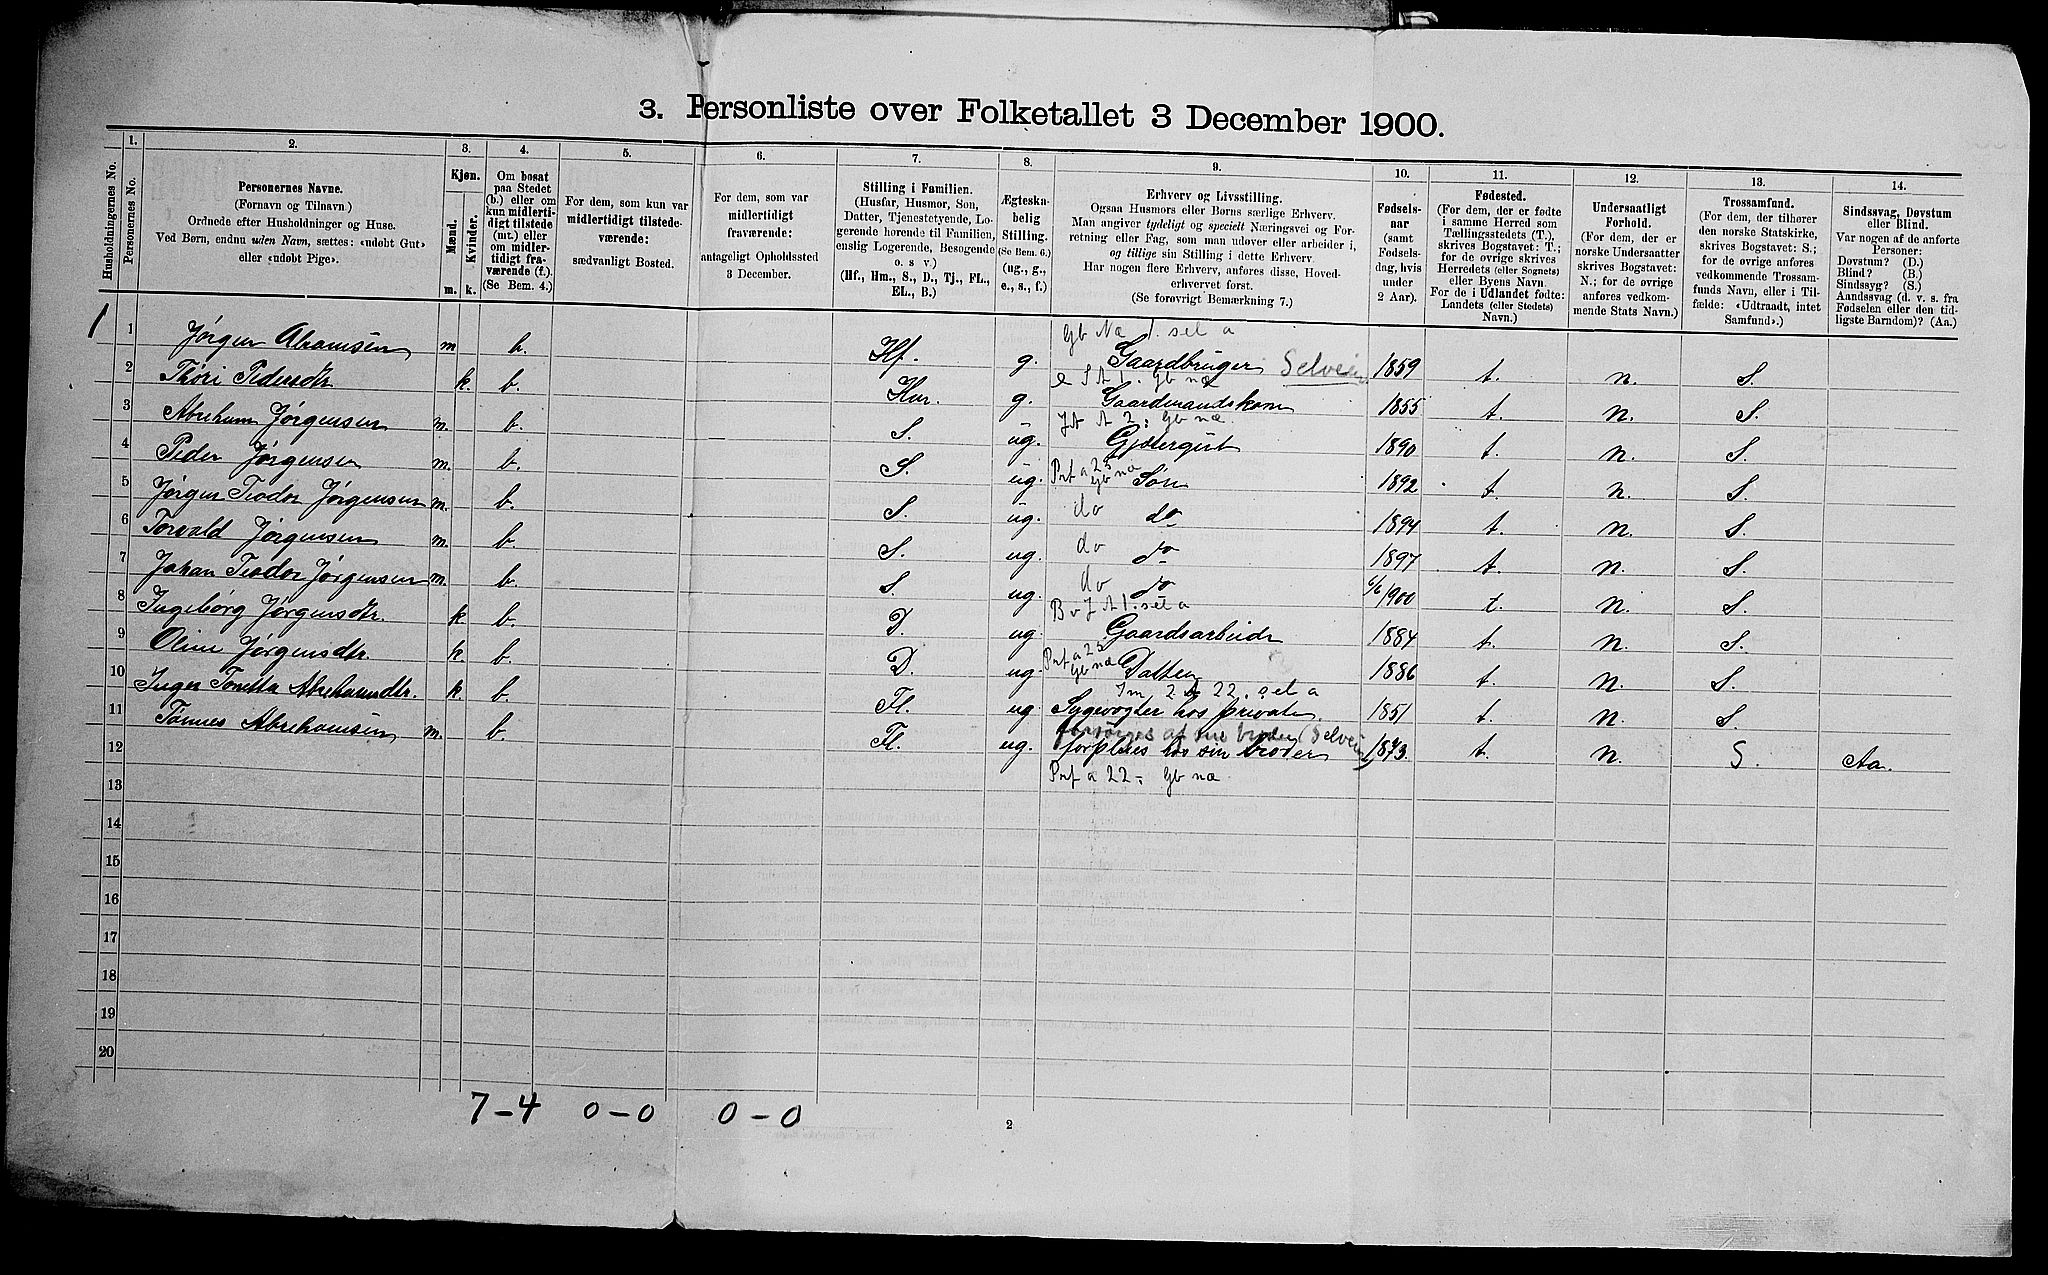 3. Personliste over Folketallet 3 December 1900.
Husholdningernes No.
1. Personernes No.
2. Personernes Navne. (Fornavn og Tilnavn.) Ordnede efter Husholdninger og Huse. Ved Børn, endnu uden Navn, sættes: «udøbt Gut» eller «udøbt Pige».
3. Kjøn. Mænd. m. Kvinder. k.
4. Om bosat paa Stedet (b.) eller om kun midlertidigt tilstede (mt.) eller om midlertidigt fraværende (f.). (Se Bem. 4.)
5. For dem, som kun var midlertidigt tilstedeværende: sædvanligt Bosted.
6. For dem, som var midlertidigt fraværende: antageligt Opholdssted 3 December.
7. Stilling i Familien. (Husfar, Husmor, Søn, Datter, Tjenestetyende, Logerende hørende til Familien, enslig Logerende, Besøgende o. s v.) (Hf., Hm., S., D., Tj., FL., EL., B.)
8. Ægteskabelig Stilling. (Se Bem. 6.) (ug., g., e., s., f.)
9. Erhverv og Livsstilling. Ogsaa Husmors eller Børns særlige Erhverv. Man angiver tydeligt og specielt Næringsvei og Forretning eller Fag, som man udøver eller arbeider i, og tillige sin Stilling i dette Erhverv. Har nogen flere Erhverv, anføres disse, Hovederhvervet først. (Se forøvrigt Bemærkning 7.)
10. Fødselsaar (samt Fødselsdag, hvis under 2 Aar).
11. Fødested. (For dem, der er fødte i samme Herred som Tællingsstedets (T.), skrives Bogstavet: T.; for de øvrige skrives Herredets (eller Sognets) eller Byens Navn. For de i Udlandet fødte: Landets (eller Stedets) Navn.)
12. Undersaatligt Forhold. (For dem, der er norske Undersaatter skrives Bogstavet: N.; for de øvrige anføres vedkommende Stats Navn.)
13. Trossamfund. (For dem, der tilhører den norske Statskirke, skrives Bogstavet: S.; for de øvrige anføres vedkommende Trossamfunds Navn, eller i Tilfælde: «Udtraadt, intet Samfund».)
14. Sindssvag, Døvstum eller Blind. Var nogen af de anførte Personer: Døvstum? (D.) Blind? (B.) Sindssyg? (S.) Aandssvag (d. v. s. fra Fødselen eller den tidligste Barndom)? (Aa.)
Gb Næ 1. sel a
1 1 Jørgen Abramsen m b. Hf. g. Gaardbruger Selveier 1859 t. n. S.
e S A 1. Gb næ
2 Thøri Pedersdtr k. b. Hm. g. Gaardmandskone 1855 t. n. S.
Jt A 2: Gb næ.
3 Abreham Jørgensen m. b. S. ug. Gjætergut 1890 t. n. S.
Prf a 25 Gb næ
4 Peder Jørgensen m. b. S. ug. Søn 1892 t. n. S.
5 Jørgen Teodor Jørgensen m. b. S. ug. do do 1894 t. n. S.
6 Torvald Jørgensen m. b. S. ug. do do 1897 t. n. S.
7 Johan Teodor Jørgensen m. b. S. ug. do do 6/6 1900 t. n. S.
B v J A 1. sel a
8 Ingebórg Jørgensdtr. k b. D. ug. Gaardsarbeide 1884 t. n. S.
Prf a 25 Gb næ
9 Oline Jørgensdtr. k. b. D. ug. Datter 1886 t. n. S.
Im, 2 A 22. sel a
10 Inger Tonetta Abrehamdtr. k. b. Fl. ug Sygevogter hos private. 1851 t. n. S.
forsørges af sin broder (Selveier)
11 Tønnes Abrehamsen m. b. Fl. ug. forpleies hos sin broder 1873. t. n. S Aa.
12 Prf a 22 - Gb næ
13
14
15
16
17
18
19
20
7 - 4 0 - 0 0 - 0
2